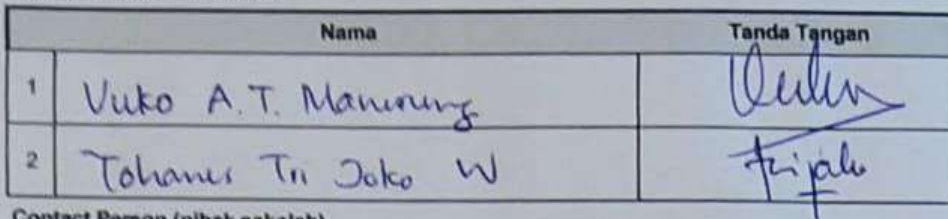 Nama Tanda Tangan
1 Vuko A.T. Manurung
2 Yohanes Tri Joko W Trijoko
Contact Person (pihak sekolah)